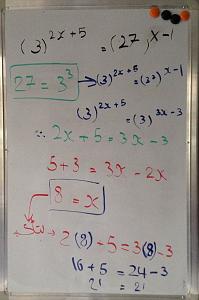 (3)^{2x+5} = (27)^{x-1}
27 = 3^3 → (3)^{2x+5} = (3^3)^{x-1}
(3)^{2x+5} = (3)^{3x-3}
∴ 2x + 5 = 3x - 3
5 + 3 = 3x - 2x
8 = x
2(8) + 5 = 3(8) - 3
16 + 5 = 24 - 3
21 = 21